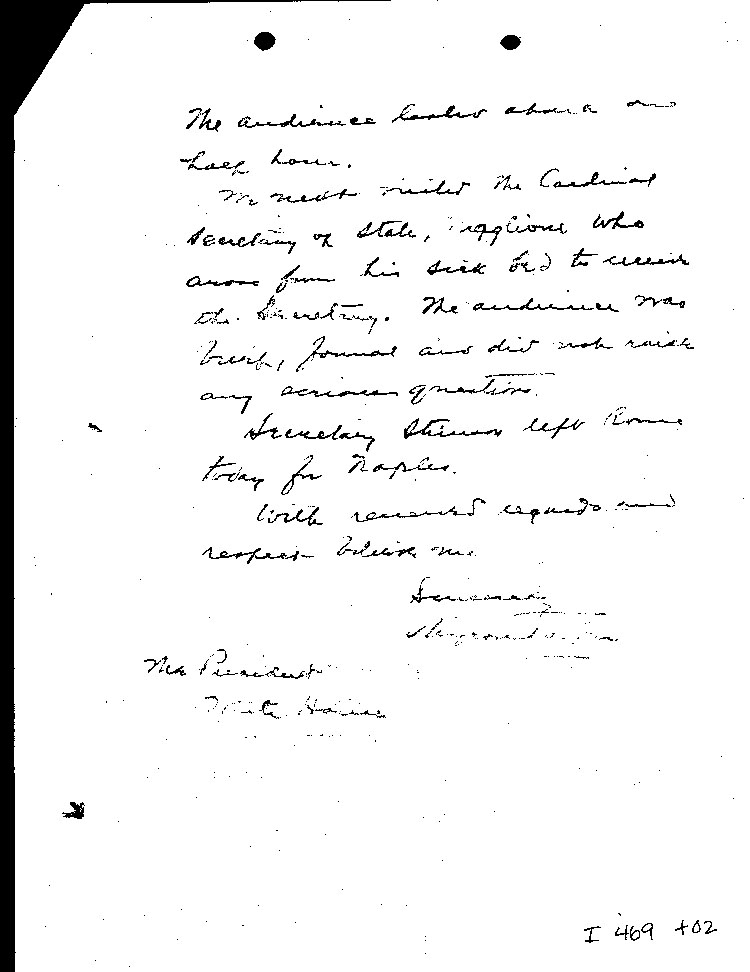 The audience lasted about one
half hour.
We next visited the Cardinal
Secretary of State, Maglione who
arose from his sick bed to receive
the Secretary. The audience was
brief, formal and did not raise
any serious questions.
Secretary Stimson left Rome
today for Naples.
With renewed regards and
respect believe me
Sincerely
Myron
The President
White House
I 469 t02